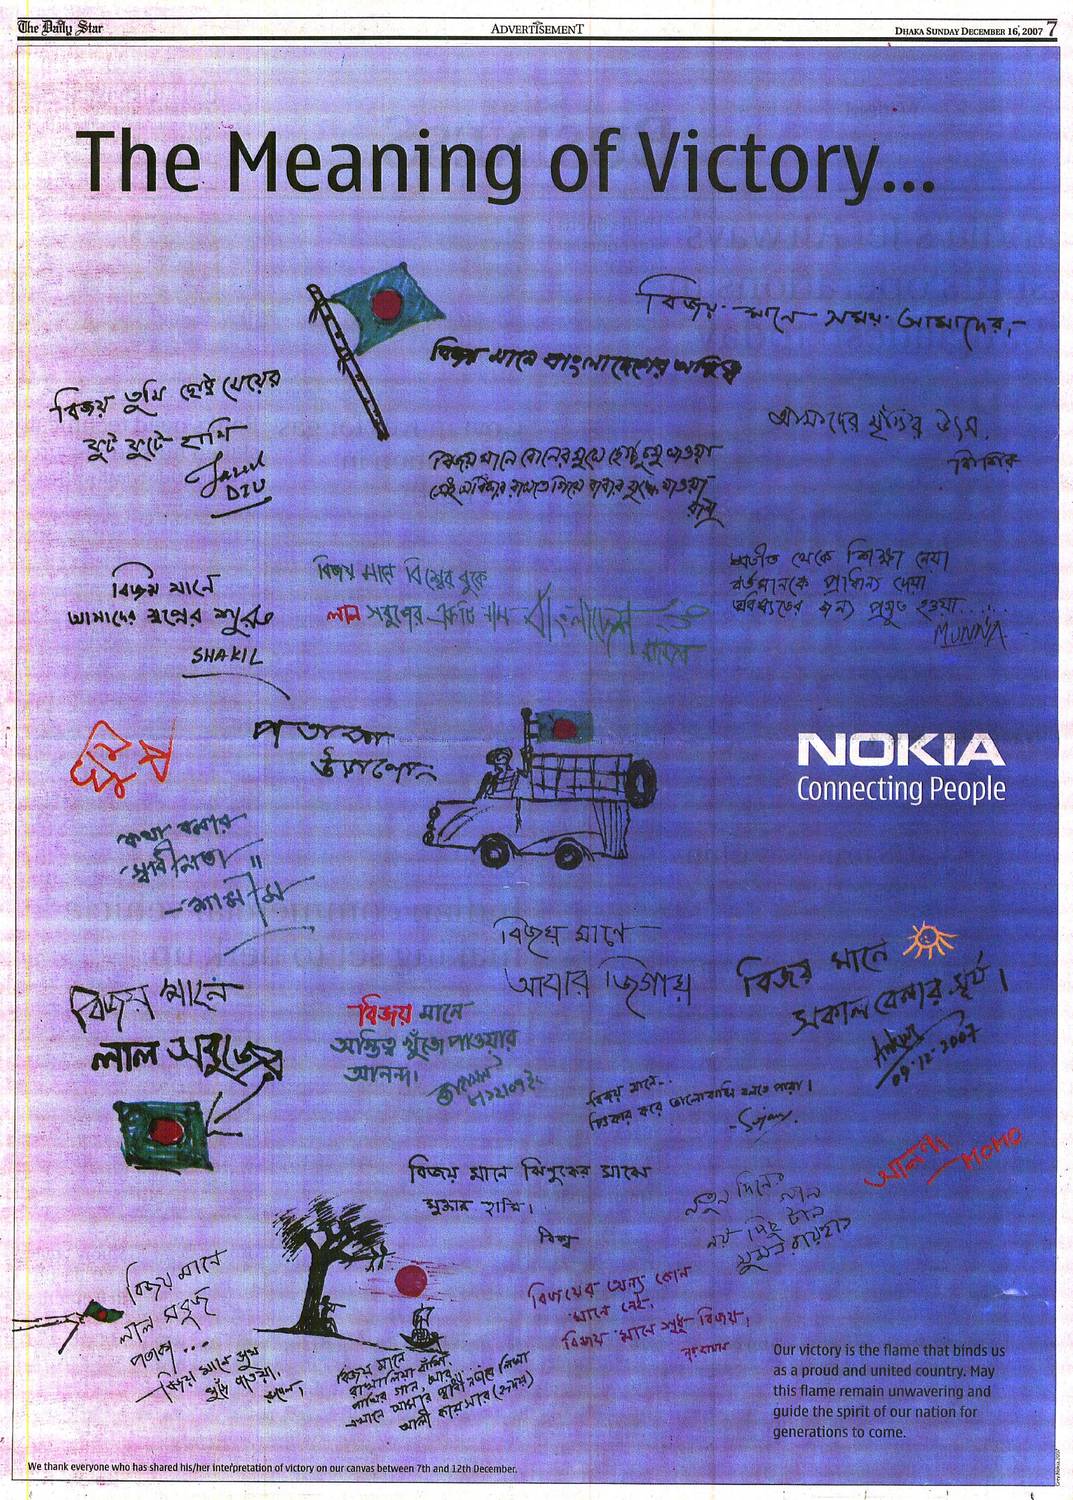 The Daily Star
ADVERTISEMENT
DHAKA SUNDAY DECEMBER 16, 2007 7
The Meaning of Victory...
বিজয় মানে সময় আমাদের,
বিজয় মানে বাংলাদেশের অস্তিত্ব
বিজয় তুমি ছোট্ট মেয়ের
ফুট ফুটে হাসি
DIU
আমাদের উৎস.
বিজয় মানে বোনের মুখে ছোট্ট চুমু খাওয়া
বিজয় মানে
আমাদের স্বপ্নের শুরু
SHAKIL
বিজয় মানে বিশ্বের বুকে
লাল সবুজের একটি নাম বাংলাদেশ
অতীত থেকে শিক্ষা নেয়া
বর্তমানকে প্রাধান্য দেয়া
ভবিষ্যতের জন্য প্রস্তুত হওয়া......
MUNNA
পতাকা
উত্তোলন
NOKIA
Connecting People
কথা বলার
স্বাধীনতা ॥
- শামীম
বিজয় মানে
আবার জিগায়
বিজয় মানে
সকাল বেলার সূর্য।
09.12.2007
বিজয় মানে
লাল সবুজের
বিজয় মানে
অস্তিত্ব খুঁজে পাওয়ার
আনন্দ।
বিজয় মানে..
চিৎকার করে ভালোবাসি বলতে পারা।
- Sujan
আনন্দ
MOMO
বিজয় মানে ঝিনুকের মাঝে
মুক্তার হাসি।
বিশ্ব
নতুন দিনের
বিজয় মানে
লাল সবুজ
পতাকা...
বিজয়ের অন্য কোন
মানে নেই.
বিজয় মানে শুধু বিজয়।
বিজয় মানে
Our victory is the flame that binds us
as a proud and united country. May
this flame remain unwavering and
guide the spirit of our nation for
generations to come.
We thank everyone who has shared his/her interpretation of victory on our canvas between 7th and 12th December.